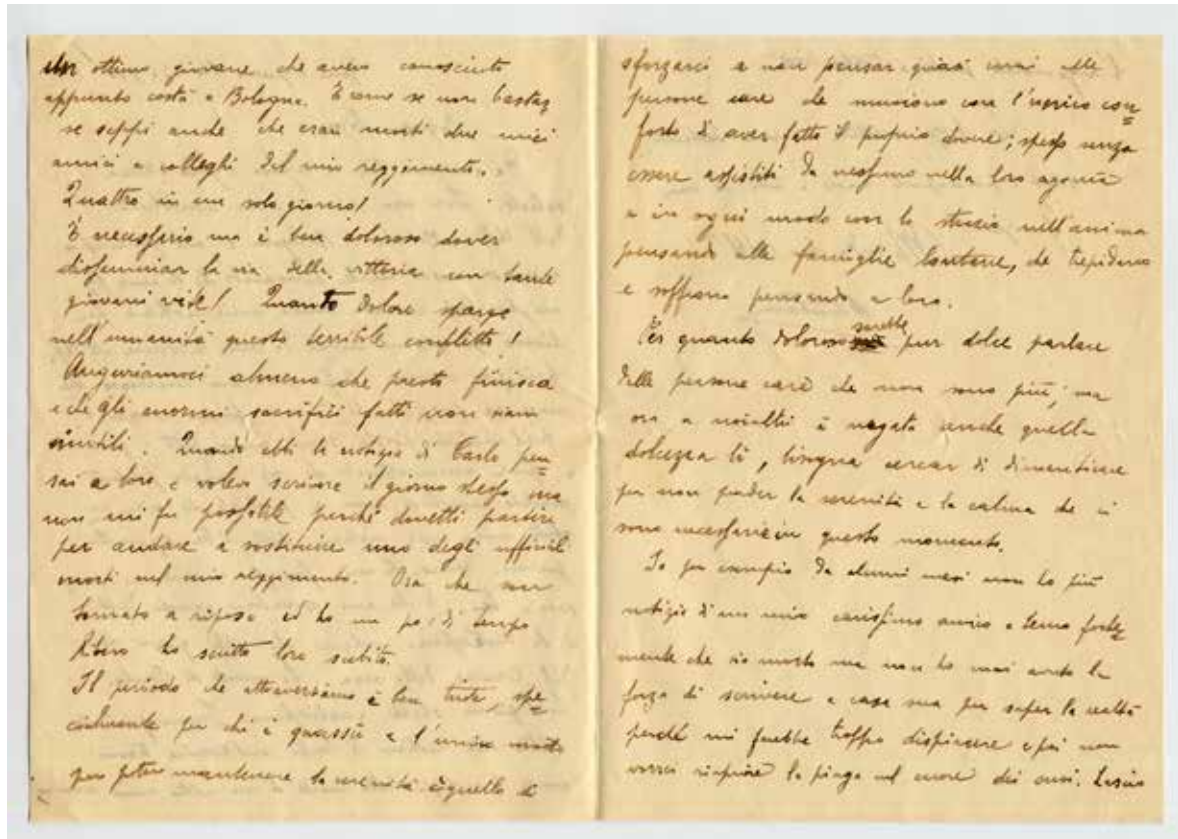 un ottimo giovane che avevo conosciuto
appunto costà a Bologna. E come se non bastas
se seppi anche che eran morti due miei
amici e colleghi del mio reggimento.
Quattro in un solo giorno!
È necessario ma è ben doloroso dover
disseminar la via della vittoria con tante
giovani vite! Quanto dolore sparge
nell'umanità questo terribile conflitto!
Auguriamoci almeno che presto finisca
e che gli enormi sacrifici fatti non sian
inutili. Quando ebbi la notizia di Carlo pen=
sai a loro e volevo scrivere il giorno stesso ma
non mi fu possibile perché dovetti partire
per andare a sostituire uno degli ufficiali
morti nel mio reggimento. Ora che son
tornato a riposo ed ho un po' di tempo
libero ho scritto loro subito.
Il periodo che attraversiamo è ben triste, spe=
cialmente per chi è quassù e l'unico modo
per poter mantenere la serenità è quello di
sforzarci a non pensar quasi mai alle
persone care che muoiono con l'unico con=
forto di aver fatto il proprio dovere; spesso senza
essere assistiti da nessuno nella loro agonia
e in ogni modo con lo strazio nell'anima
pensando alle famiglie lontane, che trepidano
e soffrono pensando a loro.
Per quanto doloroso sarebbe pur dolce parlare
delle persone care che non sono più, ma
ora a noialtri è negata anche quella
dolcezza lì, bisogna cercar di dimenticare
per non perder la serenità e la calma che ci
sono necessarie in questo momento.
Io per esempio da alcuni mesi non ho più
notizie di un mio carissimo amico e temo forte=
mente che sia morto ma non ho mai avuto la
forza di scrivere a casa sua per saper la realtà
perché mi farebbe troppo dispiacere e poi non
vorrei riaprire la piaga nel cuore dei suoi. Lascio